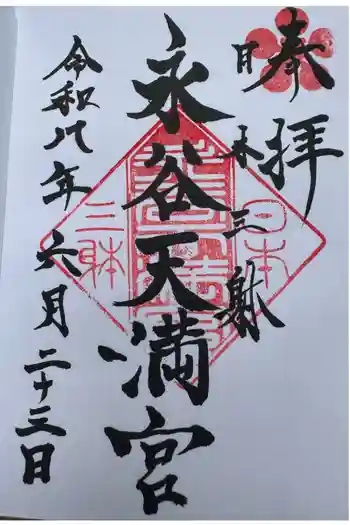 奉拝
日本三躰
永谷天満宮
令和八年六月二十三日
日本
三躰